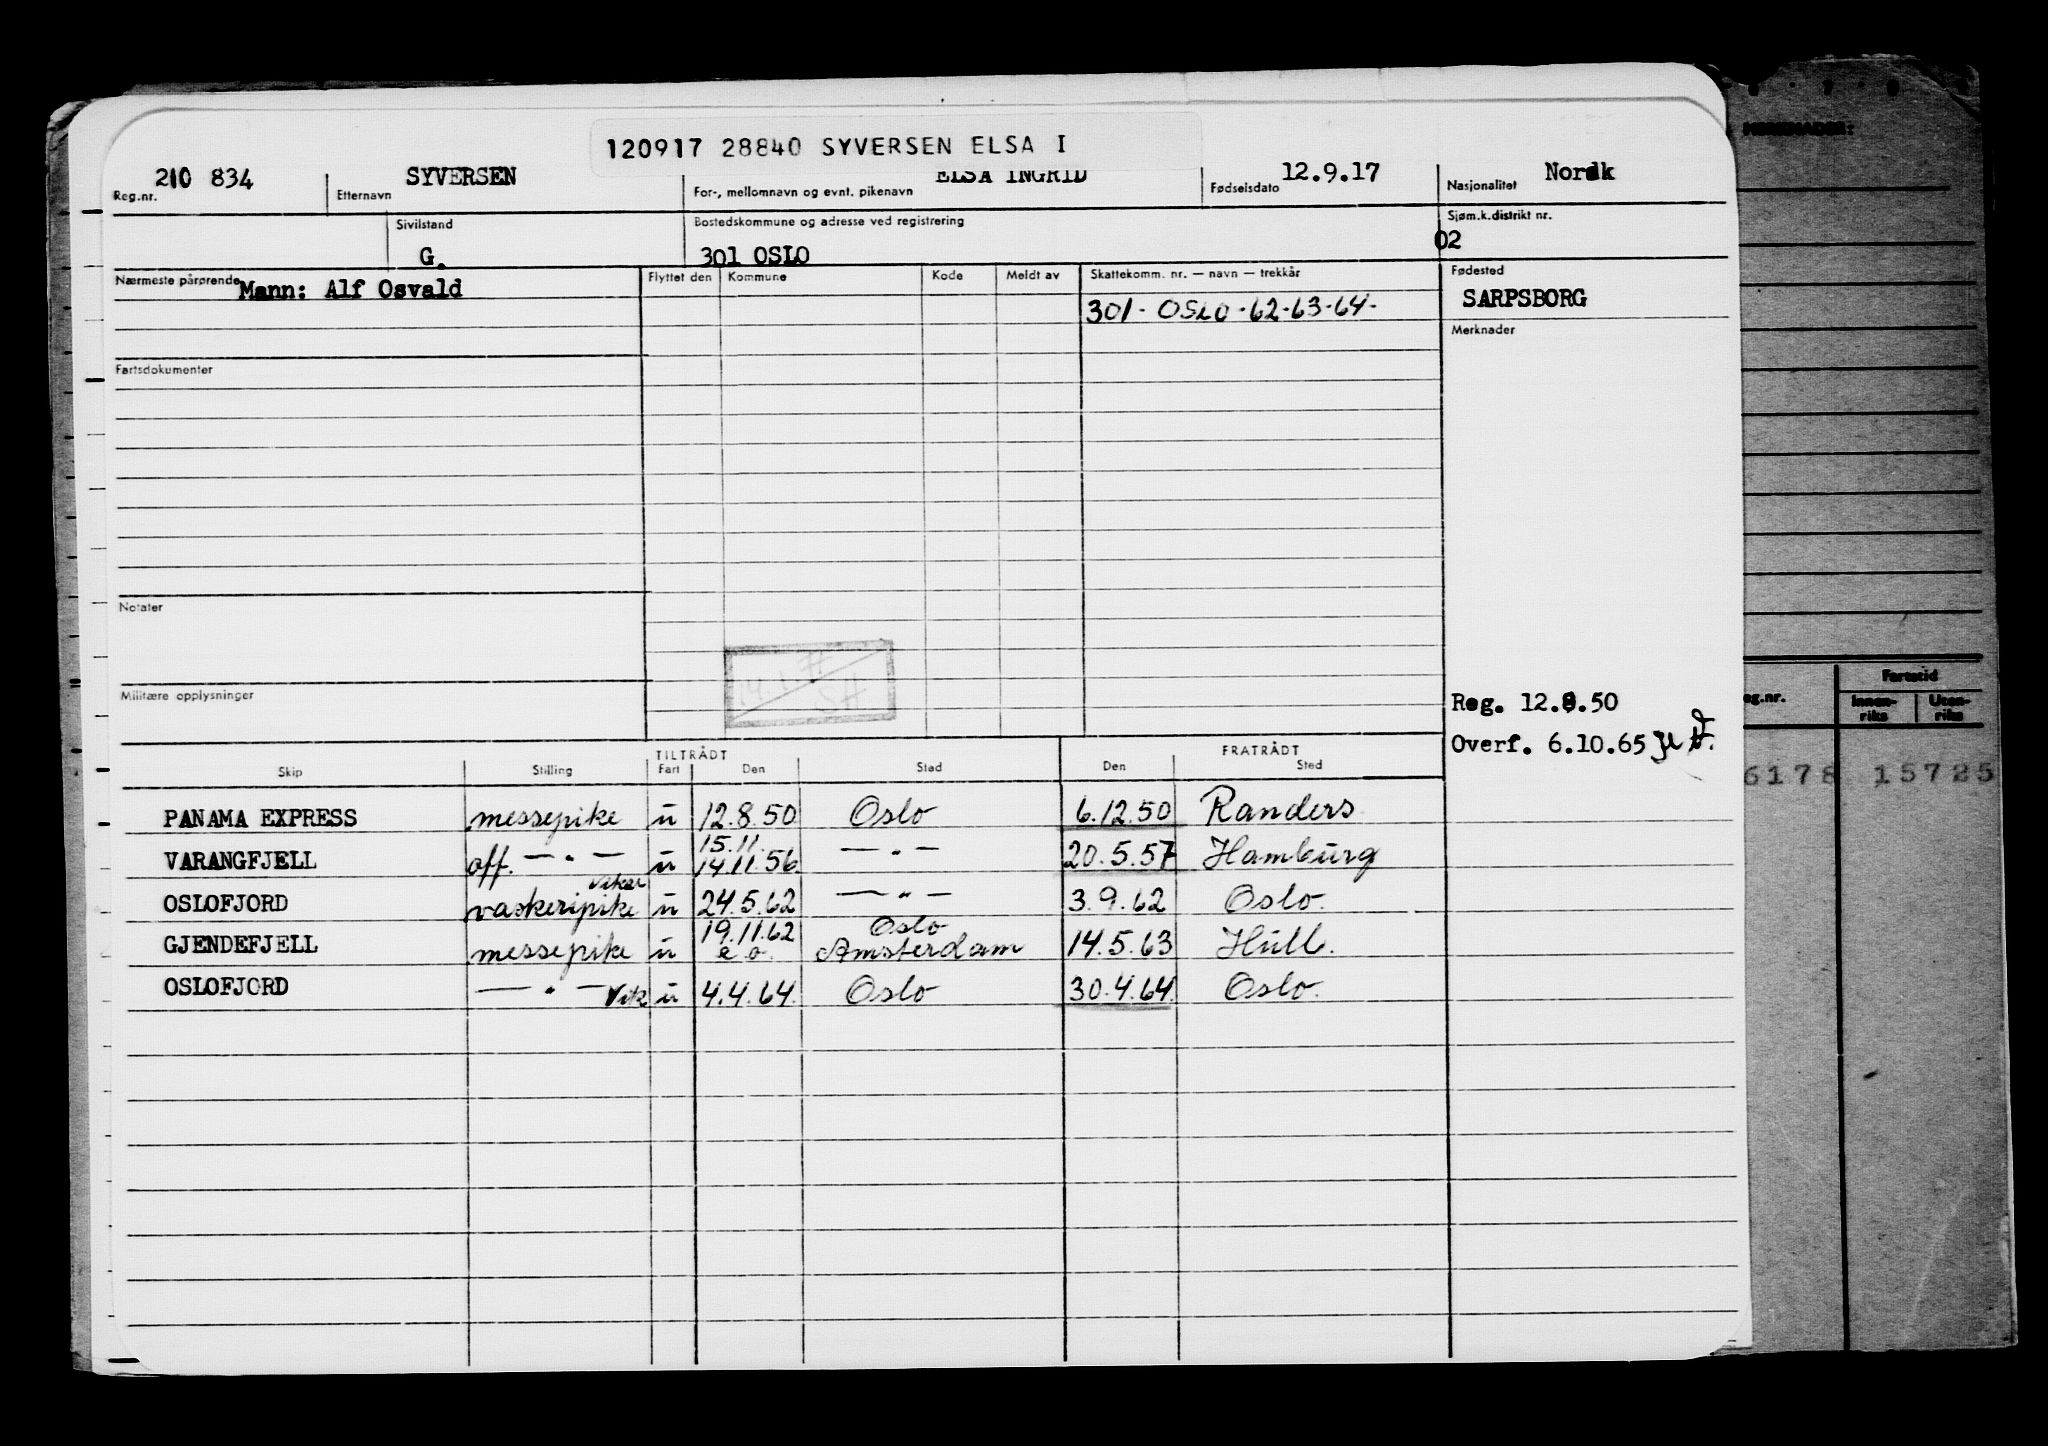 120917 28840 SYVERSEN ELSA I
Reg.nr. 210 834 Etternavn SYVERSEN For-, mellomnavn og evnt. pikenavn ELSA INGRID Fødselsdato 12.9.17 Nasjonalitet Norsk
Sivilstand G. Bostedskommune og adresse ved registrering 301 OSLO Sjøm.k.distrikt nr. 02
Nærmeste pårørende Mann: Alf Osvald Flyttet den Kommune Kode Meldt av Skattekomm. nr. — navn — trekkår Fødested
301 - OSLO - 62-63-64- SARPSBORG
Merknader
Fartsdokumenter
Notater
Militære opplysninger
SH
Reg. 12.8.50
Overf. 6.10.65
TILTRÅDT FRATRÅDT
Skip Stilling Fart Den Sted Den Sted
PANAMA EXPRESS messepike u 12.8.50 Oslo 6.12.50 Randers
15.11.
VARANGFJELL off. — " — u 14.11.56 — " — 20.5.57 Hamburg
vikar
OSLOFJORD vaskeripike u 24.5.62 — " — 3.9.62 Oslo.
19.11.62 Oslo
GJENDEFJELL messepike u e.o. Amsterdam 14.5.63 Hull.
OSLOFJORD — " — Vik u 4.4.64. Oslo 30.4.64. Oslo.
MERKNADER:
eg.nr. Fartstid
Innen-riks Uten-riks
6178 15725